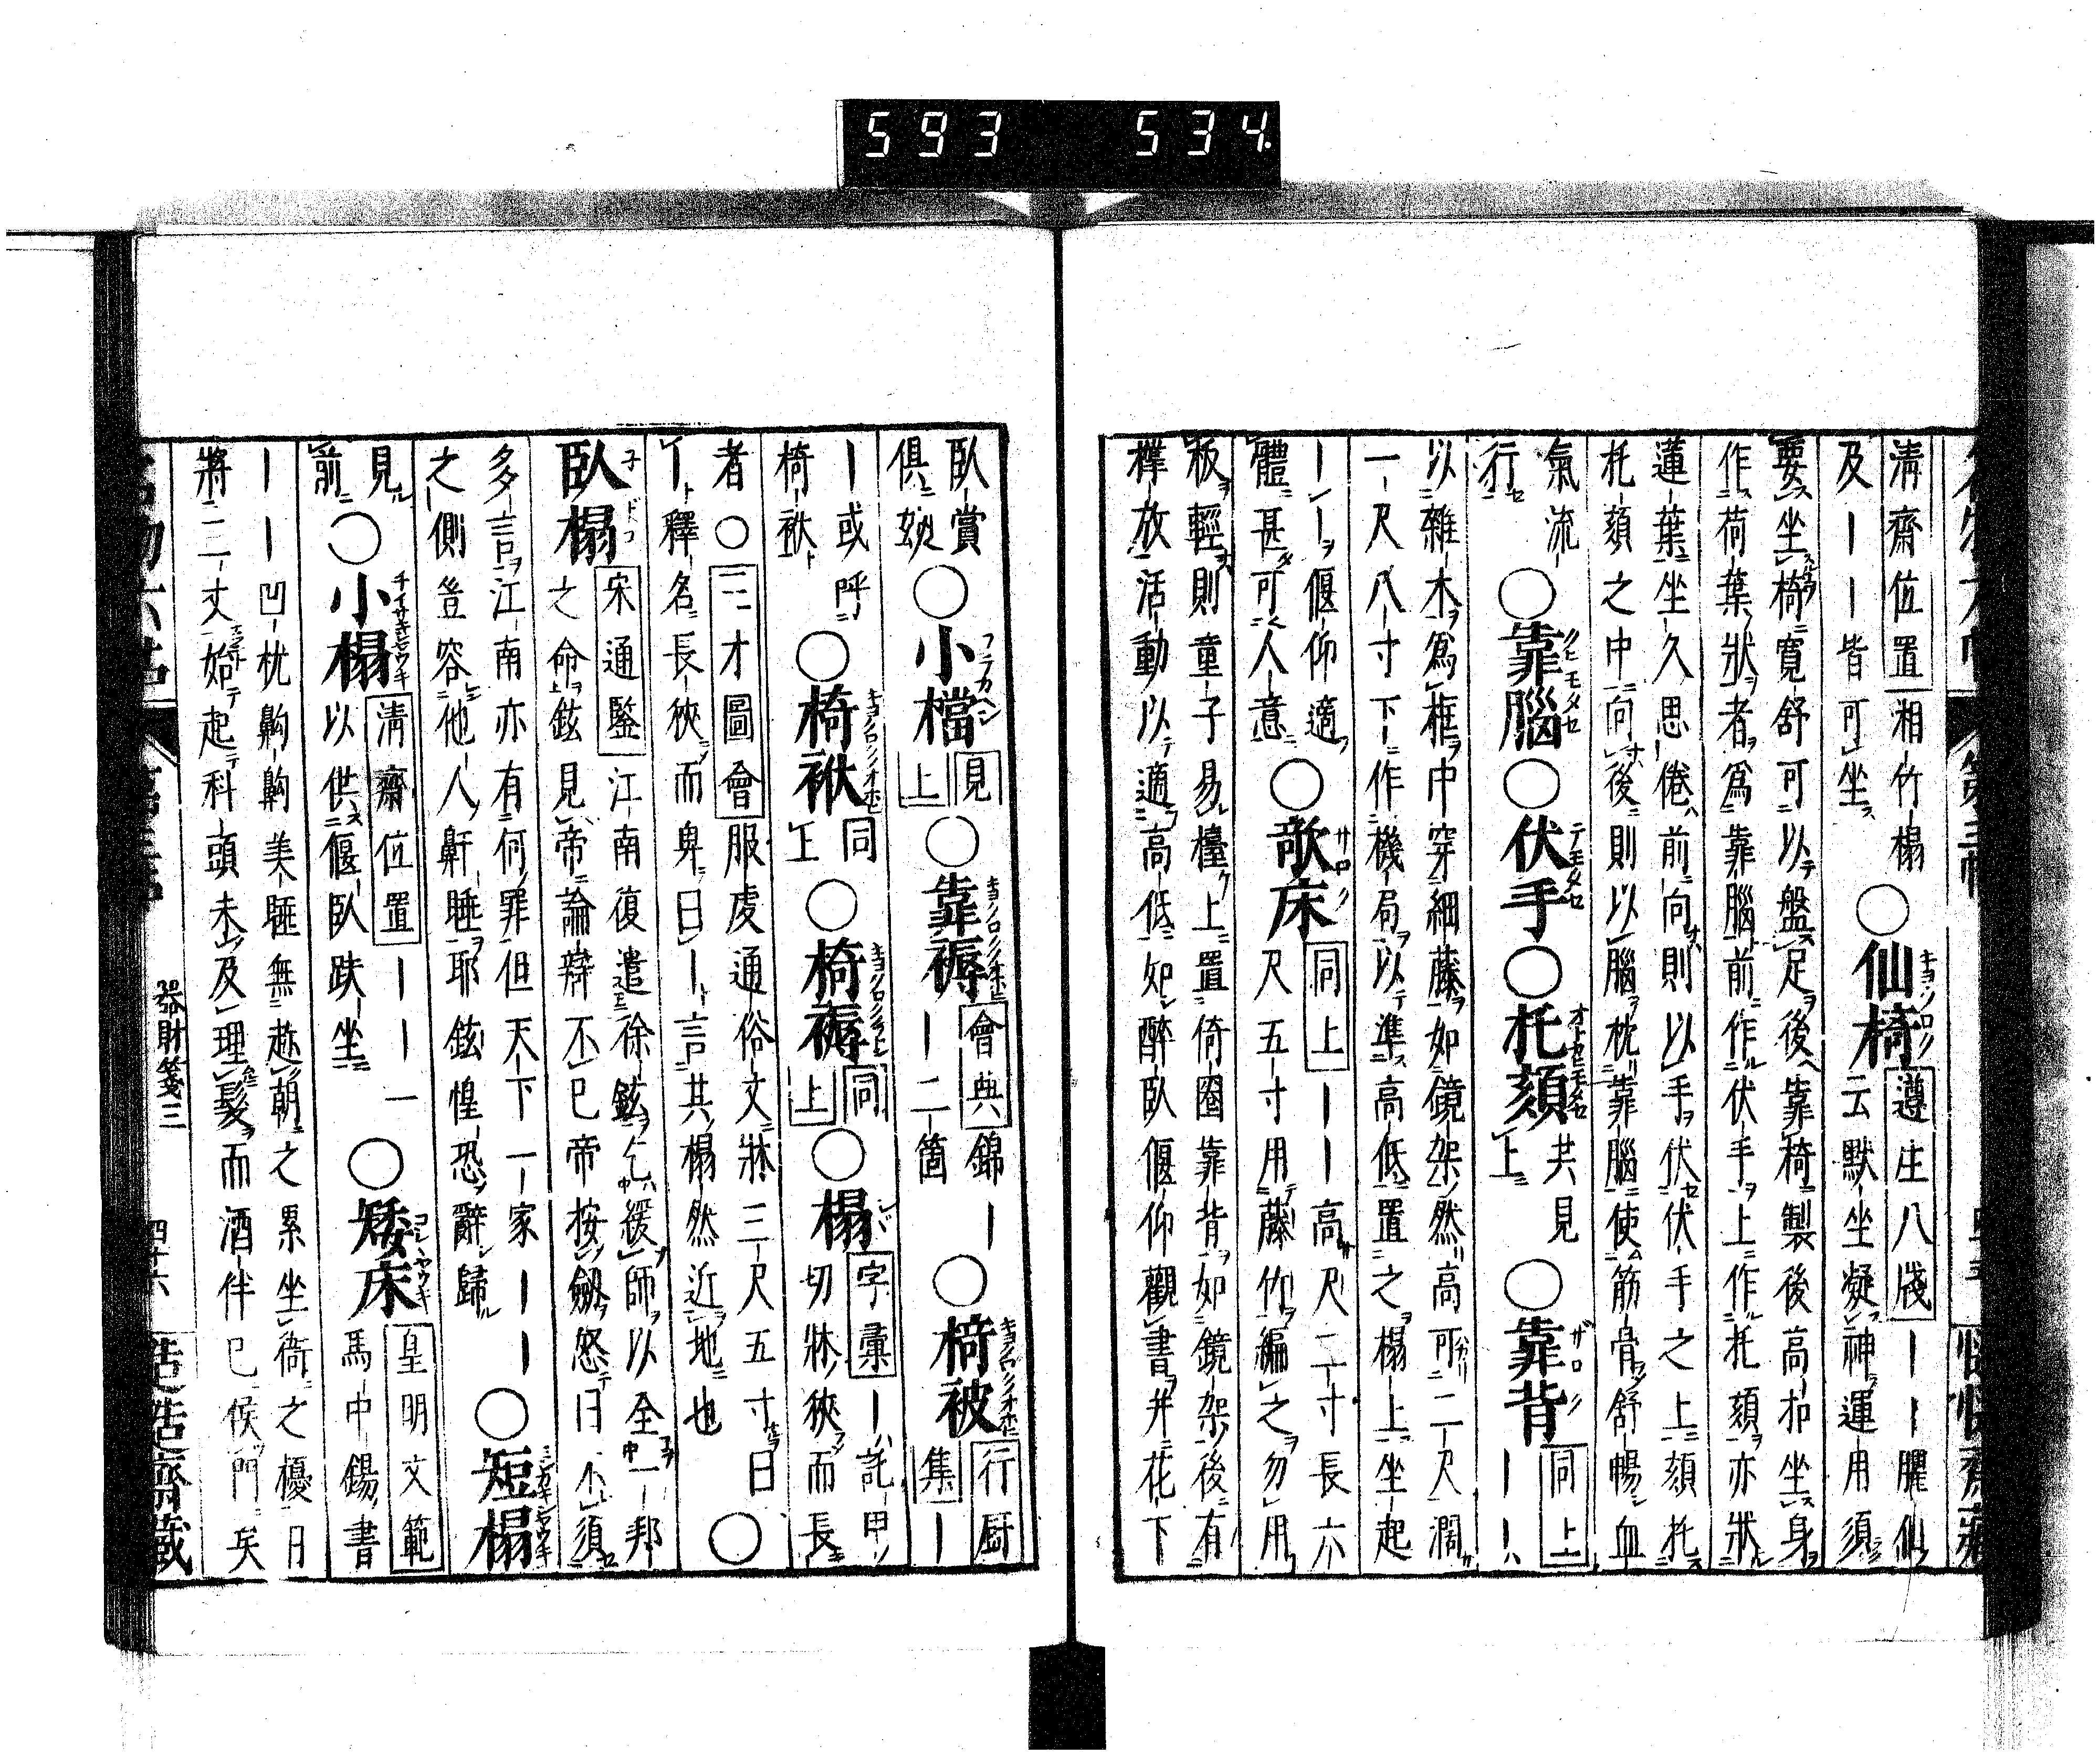 清齋位置 湘竹榻
及｜｜｜皆可坐
○仙椅
遵生八牋 ｜｜臞仙
云默坐凝神運用須
要坐椅寬舒可以盤足後靠椅製後高扣坐身
作荷葉狀者爲靠腦前作伏手上作托頦亦狀
蓮葉坐久思倦前向則以手伏伏手之上頦托
托頦之中向後則以腦枕靠腦使筋骨舒暢血
氣流
行
○靠腦○伏手○托頦
共見
上
○靠背
同上
｜｜
以雜木爲框中穿細藤如鏡架然高可二尺濶
一尺八寸下作機局以準高低置之榻上坐起
｜｜偃仰適
體甚可人意
○欹床
同上 ｜｜高尺二寸長六
尺五寸用藤竹編之勿用
板輕則童子易檯上置倚圈靠背如鏡架後有
橕放活動以適高低如醉臥偃仰觀書并花下
臥賞
俱妙
○小檔
見
上
○靠褥
會典 錦｜
｜二箇
○椅被
行厨
集｜
｜或呼
椅袱
○椅袱
同
上
○椅褥
同
上
○榻
字彙 ｜託甲
切牀狹而長
者○三才圖會 服虔通俗文牀三尺五寸曰
｜釋名長狹而卑曰｜言其榻然近地也
○
臥榻
宋通鑑 江南復遣徐鉉乞緩師以全一邦
之命鉉見帝論辯不已帝按劔怒曰不須
多言江南亦有何罪但天下一家｜｜
之側豈容他人鼾睡耶鉉惶恐辭歸
○短榻
見
前
○小榻
清齋位置 ｜｜一
以供偃臥趺坐
○矮床
皇明文範
馬中錫書
｜｜凹枕齁齁美睡無趂朝之累坐衙之擾日
將二丈始起科頭未及理髮而酒伴已候門矣
器財箋三
四十六
593 534